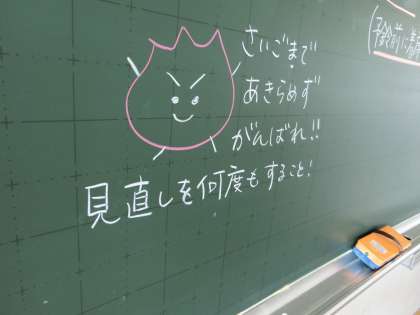 さいごまで
あきらめず
がんばれ!!
見直しを何度もすること!